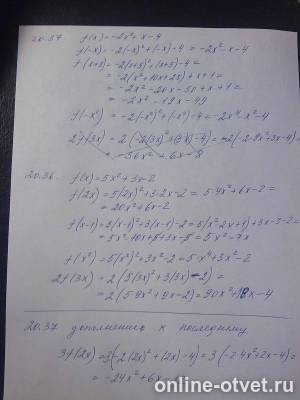 20.37 f(x) = -2x²+x-4
f(-x) = -2(-x)²+(-x)-4 = -2x²-x-4
f(x+5) = -2(x+5)²+(x+5)-4 =
= -2(x²+10x+25)+x+1 =
= -2x²-20x-50+x+1 =
= -2x²-19x-49
f(-x²) = -2(-x²)²+(-x²)-4 = -2x⁴-x²-4
= -36x²+6x-8
20.36. f(x) = 5x²+3x-2
f(2x) = 5(2x)²+3·2x-2 = 5·4x²+6x-2 =
= 20x²+6x-2
f(x-1) = 5(x-1)²+3(x-1)-2 = 5(x²-2x+1)+3x-5 =
= 5x²-10x+5+3x-5 = 5x²-7x
f(x²) = 5(x²)²+3x²-2 = 5x⁴+3x²-2
2f(3x) = 2(5(3x)²+3(3x)-2) =
= 2(5·9x²+9x-2) = 90x²+18x-4
20.37 дополнение к последнему
3f(2x) = 3(-2(2x)²+(2x)-4) = 3(-2·4x²+2x-4) =
= -24x²+6x
online-otvet.ru